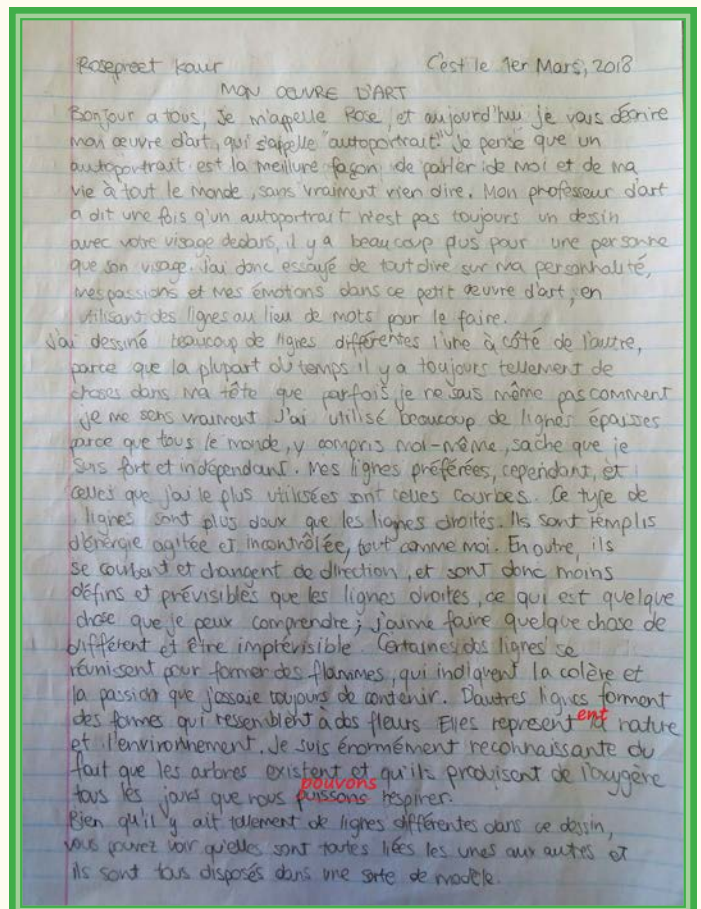 Rosepreet Kaur C'est le 1er Mars, 2018
MON OEUVRE D'ART
Bonjour a tous, Je m'appelle Rose, et aujourd'hui je vais décrire
mon œuvre d'art, qui s'appelle "autoportrait." Je pense que un
autoportrait est la meillure façon de parler de moi et de ma
vie à tout le monde, sans vraiment rien dire. Mon professeur d'art
a dit une fois q'un autoportrait n'est pas toujours un dessin
avec votre visage dedans, il y a beaucoup plus pour une personne
que son visage. J'ai donc essayé de tout dire sur ma personnalité,
mes passions et mes émotions dans ce petit œuvre d'art, en
utilisant des lignes au lieu de mots pour le faire.
J'ai dessiné beaucoup de lignes différentes l'une à côté de l'autre,
parce que la plupart du temps il y a toujours tellement de
choses dans ma tête que parfois je ne sais même pas comment
je me sens vraiment. J'ai utilisé beaucoup de lignes épaisses
parce que tous le monde, y compris moi-même, sache que je
suis fort et indépendant. Mes lignes préférées, cependant, et
celles que j'ai le plus utilisées sont celles courbes. Ce type de
lignes sont plus doux que les lignes droites. Ils sont remplis
d'énergie agitée et incontrôlée, tout comme moi. En outre, ils
se courbent et changent de direction, et sont donc moins
défins et prévisibles que les lignes droites, ce qui est quelque
chose que je peux comprendre; j'aime faire quelque chose de
différent et être imprévisible. Certaines des lignes se
réunissent pour former des flammes, qui indiquent la colère et
la passion que j'essaie toujours de contenir. D'autres lignes forment
des formes qui ressemblent à des fleurs Elles represent ent la nature
et l'environnement. Je suis énormément reconnaissante du
fait que les arbres existent et qu'ils produisent de l'oxygène
pouvons
tous les jours que nous puissons respirer.
Bien qu'il y ait tellement de lignes différentes dans ce dessin,
vous pouvez voir qu'elles sont toutes liées les unes aux autres et
ils sont tous disposés dans une sorte de modèle.